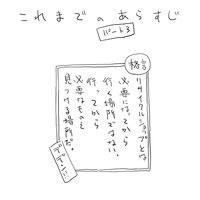 これまでのあらすじ
パート3
格言
リサイクルショップとは
必要になってから
行く場所ではない。
行ってから
必要なものを
見つける場所だ。
デデデン!!